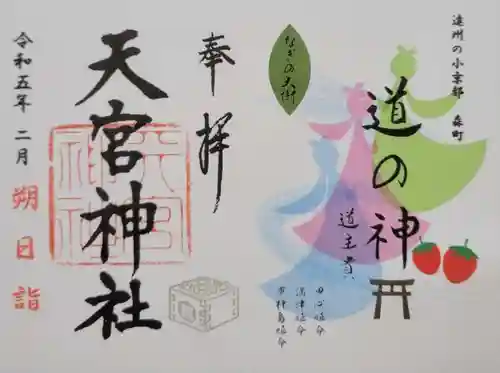 遠州の小京都 森町
道の神
道主貴
田心姫命
湍津姫命
市杵島姫命
なぎの大樹
奉拝
天宮神社
令和五年二月
朔日詣